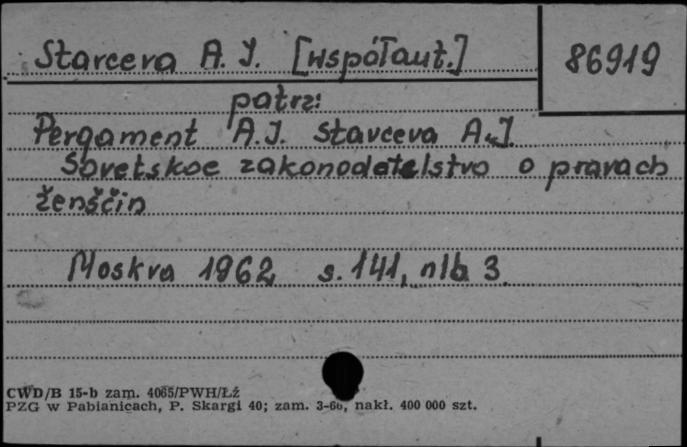 Starceva A. J. [współaut.]
86919
patrz:
Pergament A.J. Starceva A.J.
Sovetskoe zakonodatelstvo o pravach
ženščin
Moskva 1962 s. 141, nlb 3.
CWD/B 15-b zam. 4065/PWH/Łź
PZG w Pabianicach, P. Skargi 40; zam. 3-66, nakł. 400 000 szt.